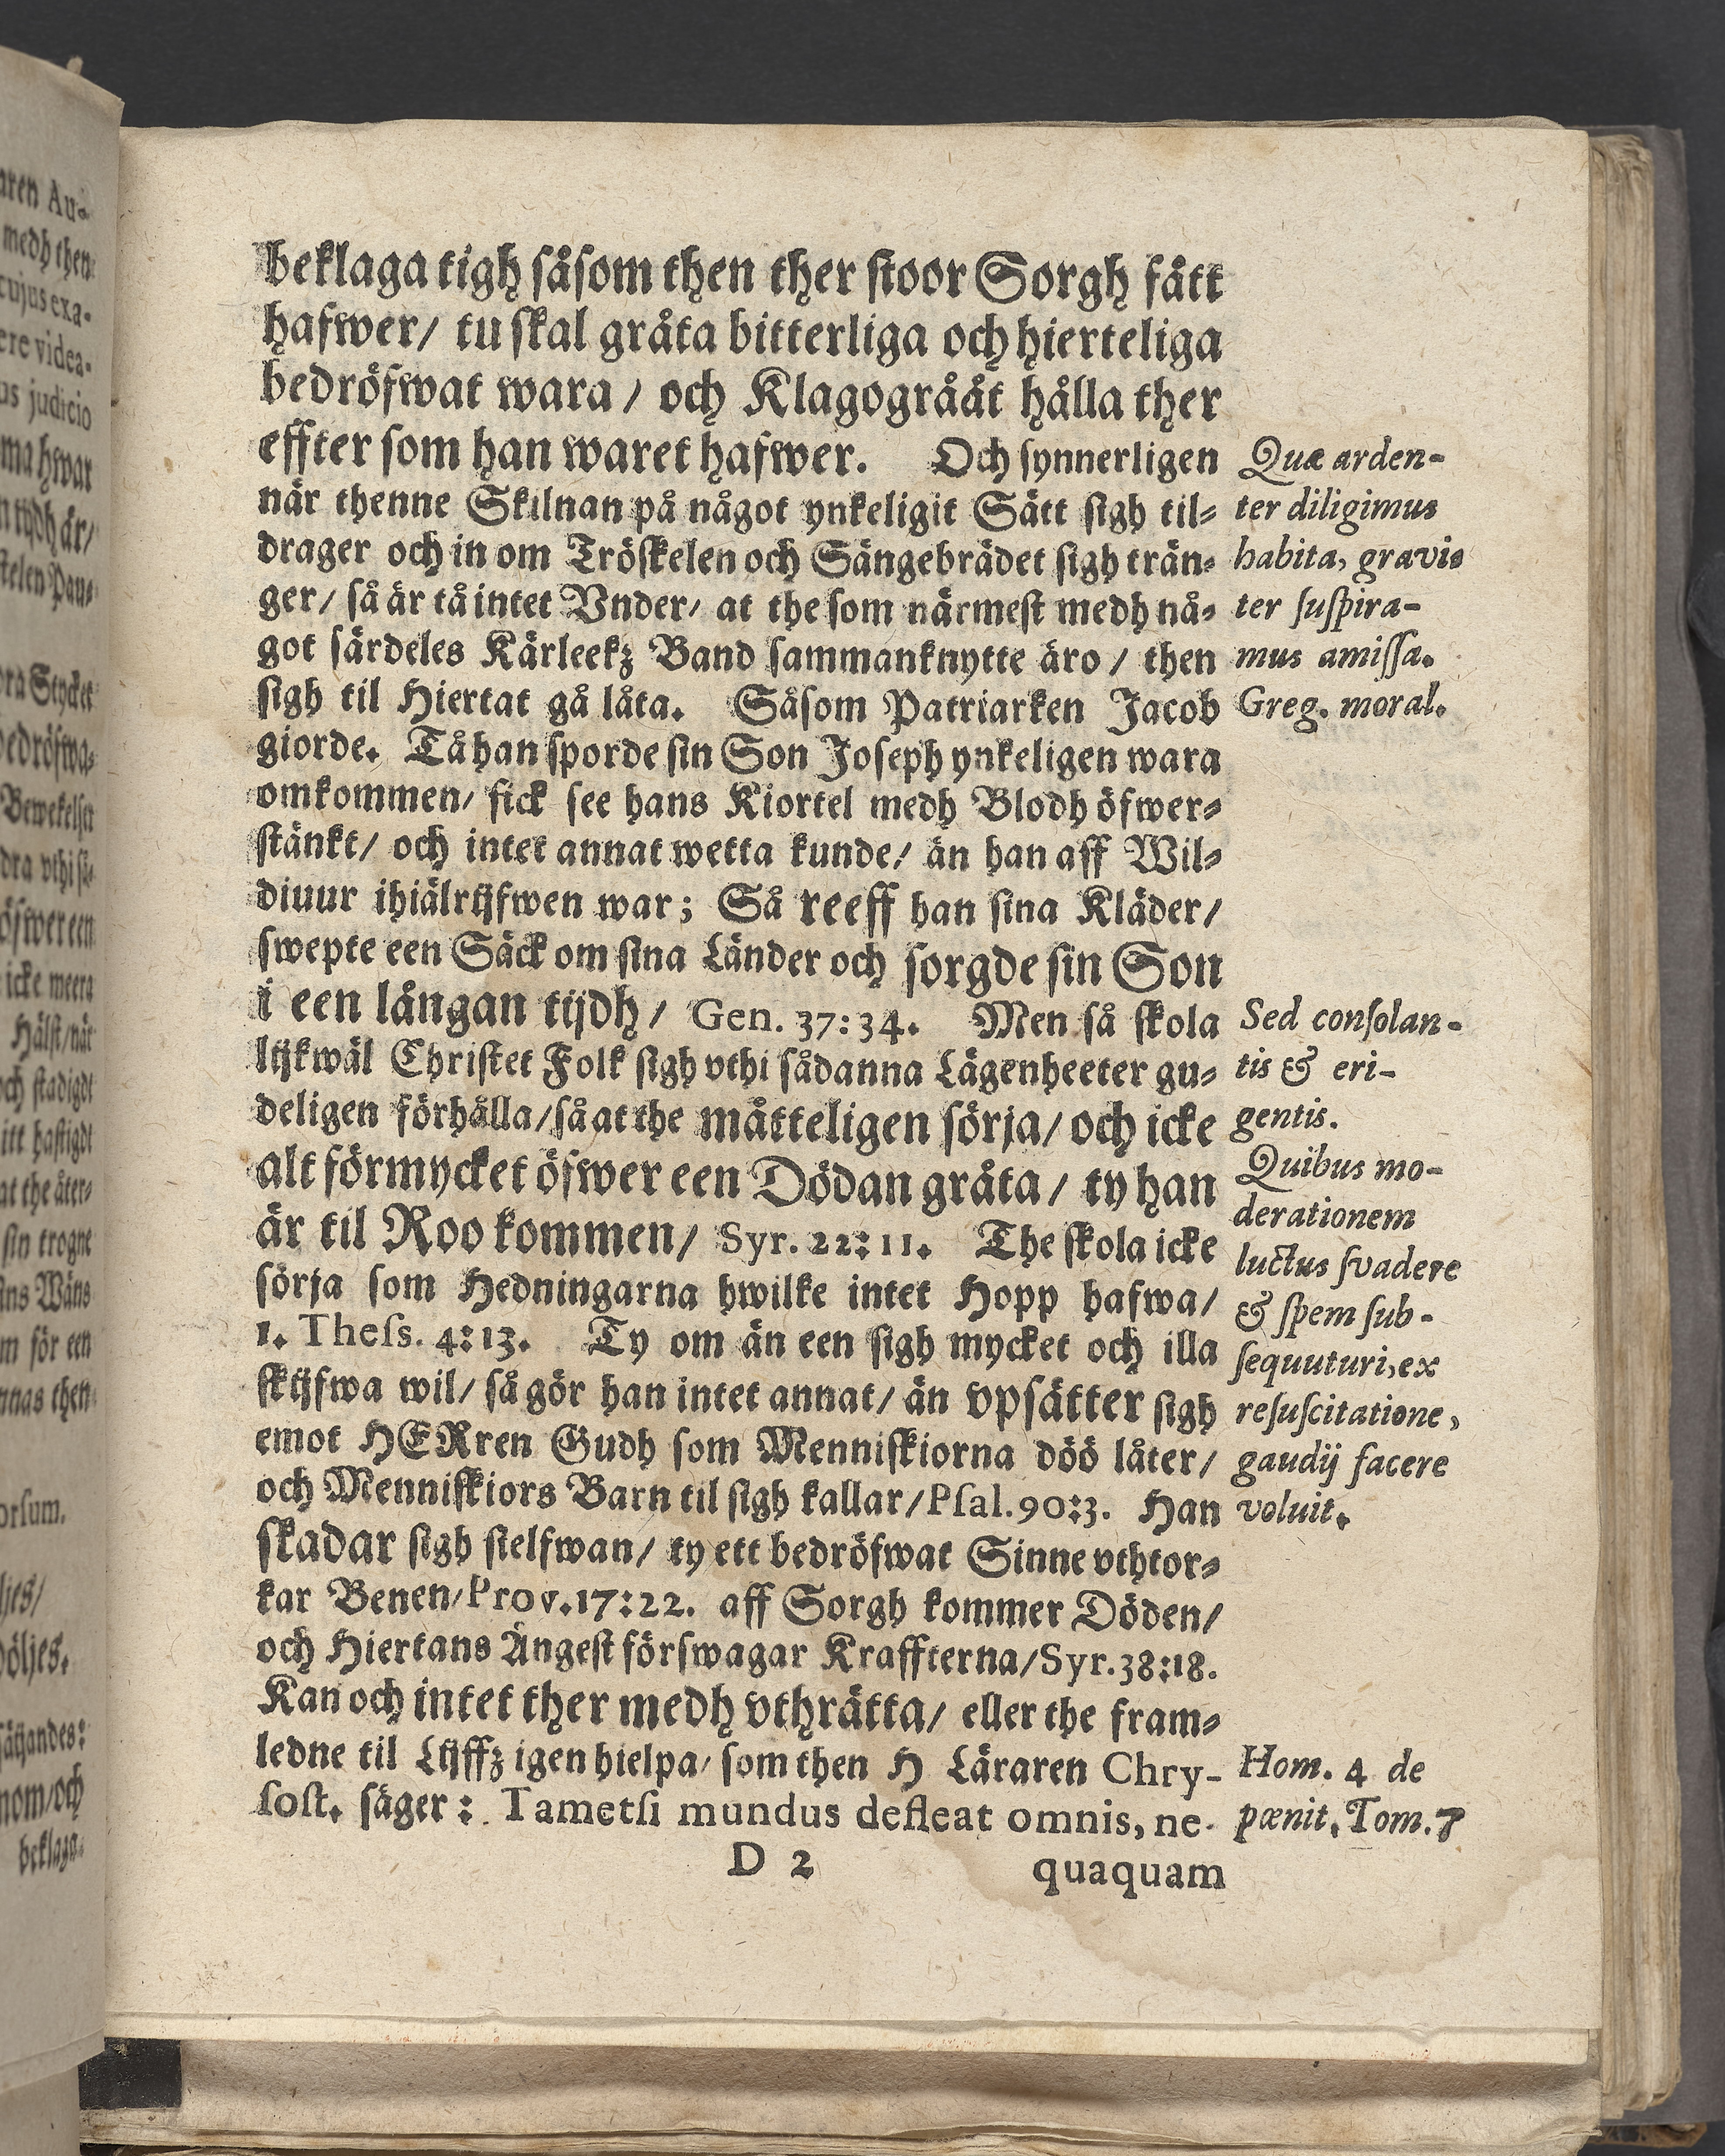 beklaga tigh såsom then ther stoor Sorgh fått
hafwer/ tu skal gråta bitterliga och hierteliga
bedröfwat wara / och Klagogrååt hålla ther
effter som han waret hafwer. Och synnerligen
när thenne Skilnan på något ynkeligit Sätt sigh til-
drager och in om Tröskelen och Sängebrädet sigh trän-
ger/ så är tå intet Vnder/ at the som närmest medh nå-
got särdeles Kärleekz Band sammanknytte äro / then
sigh til Hiertat gå låta. Såsom Patriarken Jacob
giorde. Tå han sporde sin Son Joseph ynkeligen wara
omkommen/ fick see hans Kiortel medh Blodh öfwer-
stänkt/ och intet annat wetta kunde/ än han aff Wil-
diuur ihiälrijfwen war; Så reeff han sina Kläder/
swepte een Säck om sina Länder och sorgde sin Son
i een långan tijdh/ Gen. 37:34. Men så skola
lijkwäl Christet Folk sigh vthi sådanna Lägenheeter gu-
deligen förhålla/ så at the måtteligen sörja/ och icke
alt förmycket öfwer een Dödan gråta/ ty han
är til Roo kommen/ Syr. 22:11. The skola icke
sörja som Hedningarna hwilke intet Hopp hafwa/
1. Thess. 4:13. Ty om än een sigh mycket och illa
skijfwa wil/ så gör han intet annat/ än vpsätter sigh
emot HERren Gudh som Menniskiorna döö låter/
och Menniskiors Barn til sigh kallar/ Psal. 90:3. Han
skadar sigh sielfwan/ ty ett bedröfwat Sinne vthtor-
kar Benen/ Prov. 17:22. aff Sorgh kommer Döden/
och Hiertans Ångest förswagar Kraffterna/ Syr. 38:18.
Kan och intet ther medh vthrätta/ eller the fram-
ledne til Lijffz igen hielpa/ som then H Läraren Chry-
sost. säger: Tametsi mundus defleat omnis, ne-
D 2 quaquam
Quæ arden-
ter diligimus
habita, gravis
ter suspira-
mus amissa.
Greg. moral.
Sed consolan-
tis & eri-
gentis.
Quibus mo-
derationem
luctus svadere
& spem sub-
sequuturi, ex
resuscitatione,
gaudij facere
voluit.
Hom. 4 de
pœnit. Tom. 7